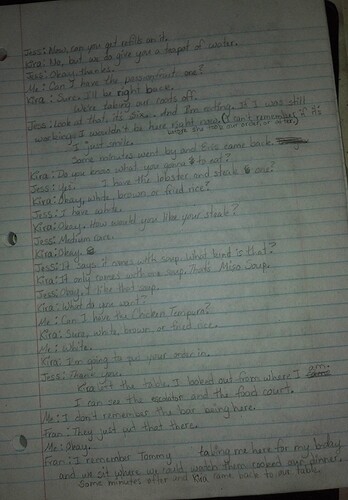 Jess: Now, can you get refills on it.
Kira: No, but we do give you a teapot of water.
Jess: Okay, thanks.
Me: Can I have the passionfruit one?
Kira: Sure. I'll be right back.
We're taking our coats off.
Jess: Look at that, its six. And I'm eating. If I was still
working, I wouldn't be here right now. (I can't remember if it's
before she took our order or after)
I just smile.
Some minutes went by and came back.
Kira: Do you know what you gonna to eat?
Jess: Yes. I have the lobster and steak one?
Kira: Okay, white, brown or fried rice?
Jess: I have white.
Kira: Okay. How would you like your steak?
Jess: Medium rare.
Kira: Okay.
Jess: It says it comes with soup. what kind is that?
Kira: It only comes with one soup. Thats Miso Soup.
Jess: Okay. I like that soup.
Kira: What do you want?
Me: Can I have the Chicken Tempura?
Kira: Sure, white, brown, or fried rice.
Me: White.
Kira: I'm going to put your order in.
Jess: Thank you.
Kira left the table. I looked out from where I am.
I can see the escalator and the food court.
Me: I don't remember the bar being here.
Fran: They just put that there.
Me: Okay.
Fran: I remember Tommy taking me here for my b-day
and we sit where we could watch them cooked our dinner.
Some minutes after Kira came back to our table.